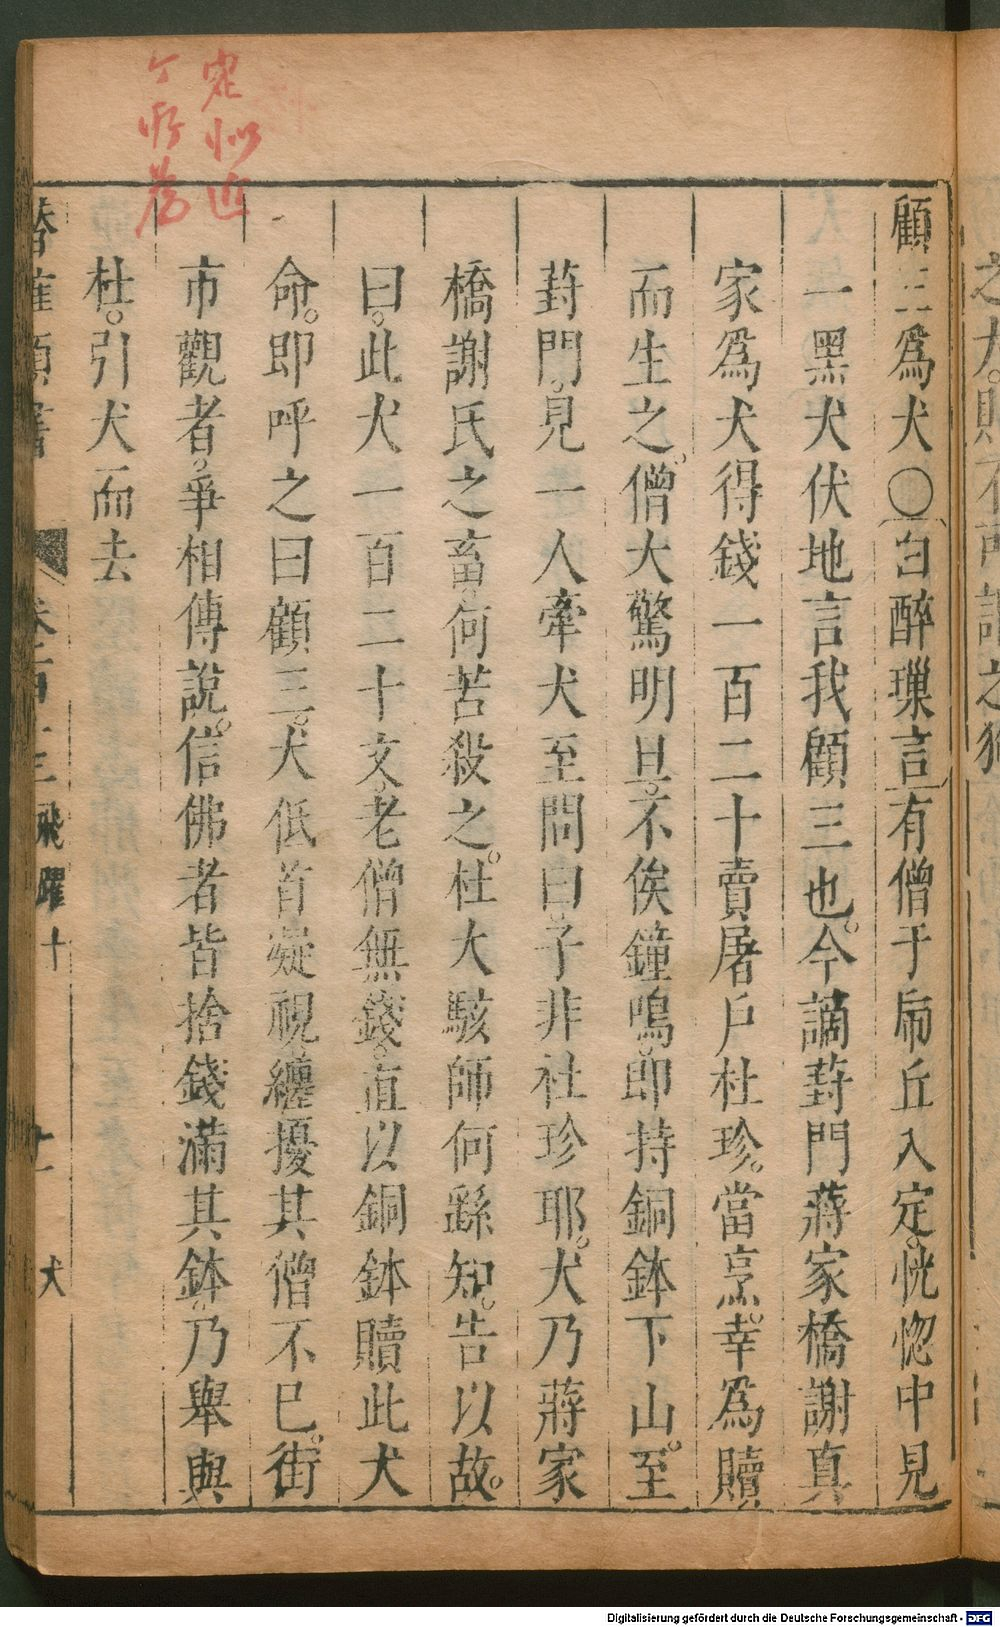 之犬
顧三爲犬〇白醉璅言有僧于虎丘入定恍惚中見
一黑犬伏地言我顧三也今謫葑門蔣家橋謝真
家爲犬得錢一百二十賣屠戶杜珍當烹幸爲贖
而生之僧大驚明旦不俟鐘鳴即持銅鉢下山至
葑門見一人牽犬至問曰子非社珍耶犬乃蔣家
橋謝氏之畜何苦殺之杜大駭師何繇知告以故
曰此犬一百二十文老僧無錢直以銅鉢贖此犬
命即呼之曰顧三犬低首凝視纏擾其僧不已街
市觀者爭相傳說信佛者皆捨錢滿其鉢乃舉與
杜引犬而去
飛躍十 十一 犬
Digitalisierung gefördert durch die Deutsche Forschungsgemeinschaft - DFG